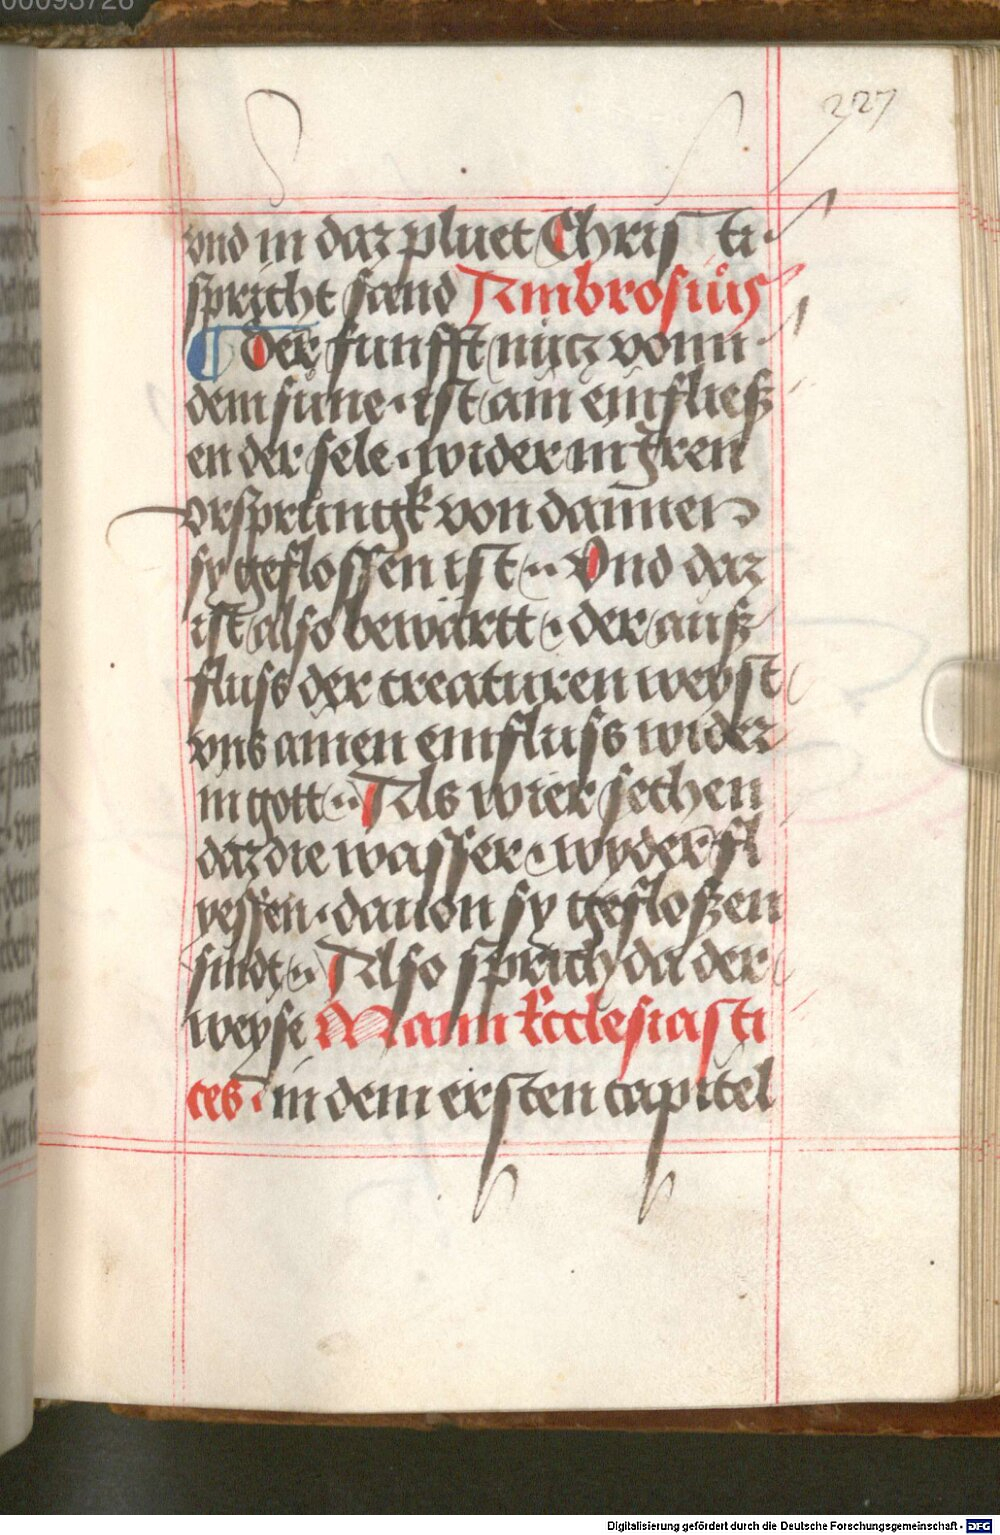 00093726
227
vnd in daz pluet Christi
spricht sand Ambrosiůs
¶ der funfft nucz vonn
dem sune · ist ain einfließ
en der sele · wider in jren
vrsprungk von dannen
sy geflossen ist ·· Vnd daz
ist also bewärtt · der auß
fluss der creaturen weyst
vns ainen einfluss wider
in gott ·· Als wier sechen
daz die wasser · wyder fl
yessen · dauon sy gefloßen
sindt ·· Also sprich da der
weyse Mann Ecclesiasti
ces · in dem ersten capitel
Digitalisierung gefördert durch die Deutsche Forschungsgemeinschaft - DFG